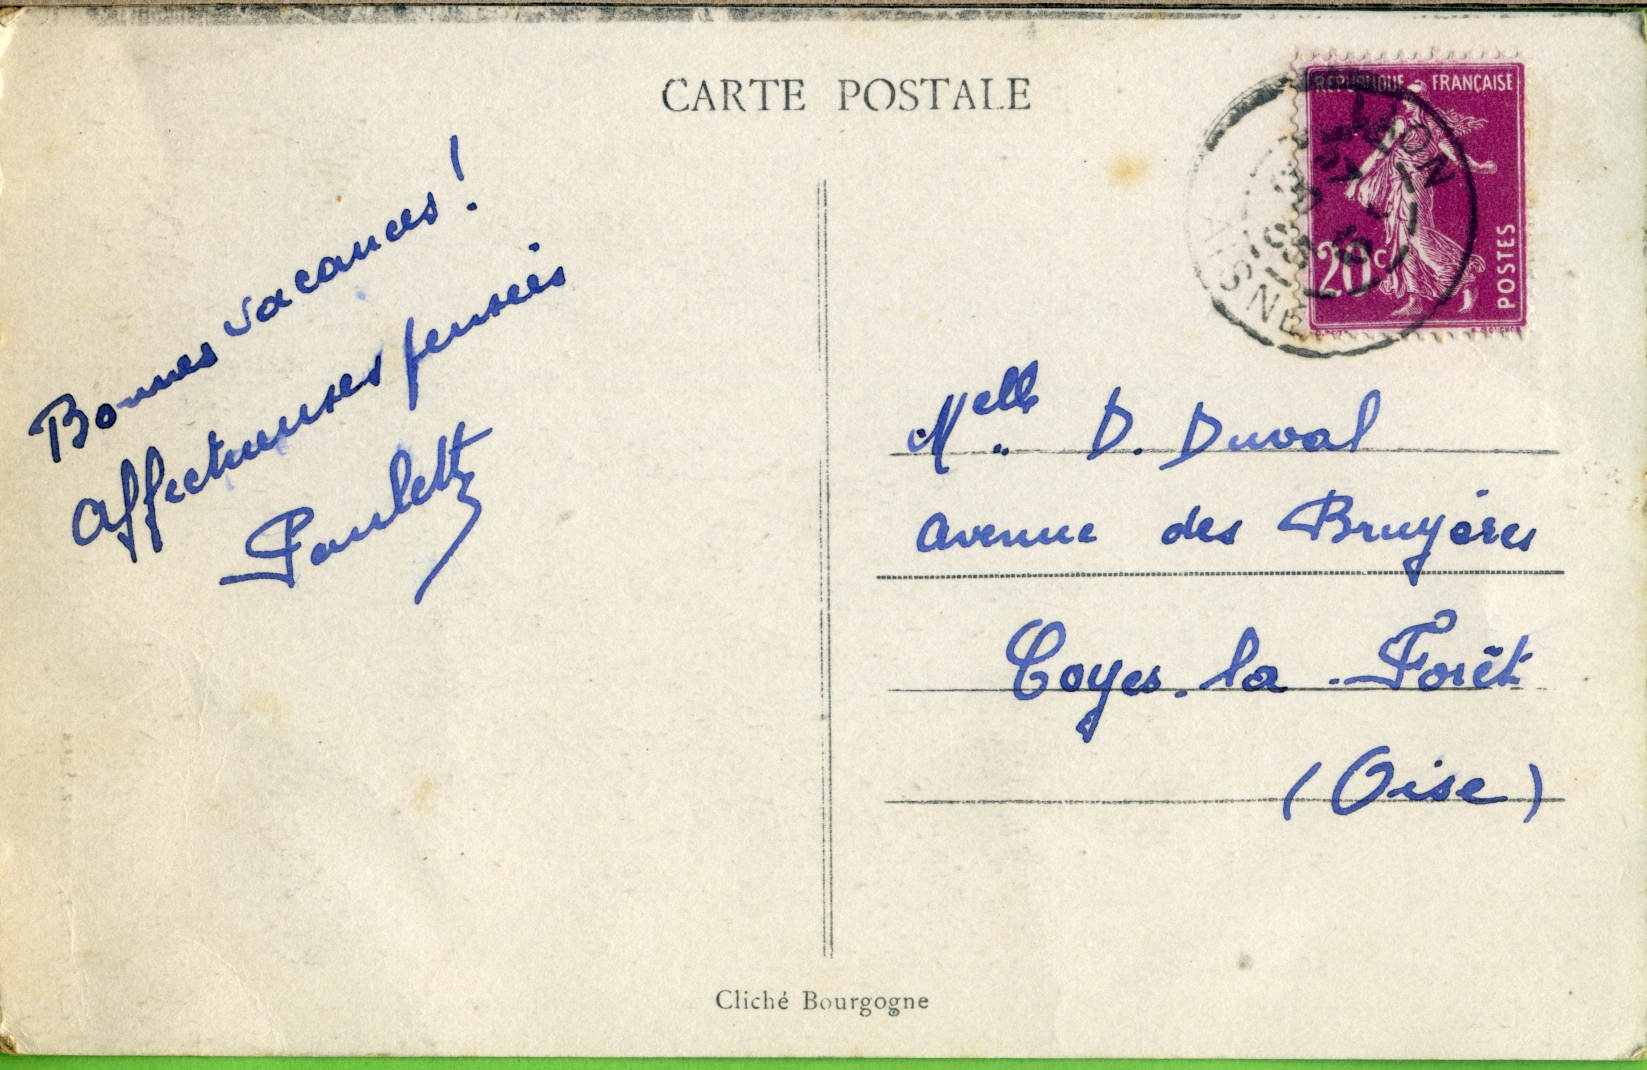 CARTE POSTALE
Bonnes vacances !
Affectueuses pensées
Paulette
REPUBLIQUE FRANÇAISE
20c
POSTES
LAON
AISNE
Melle D. Duval
avenue des Bruyères
Coyes. la - Forêt
(Oise)
Cliché Bourgogne